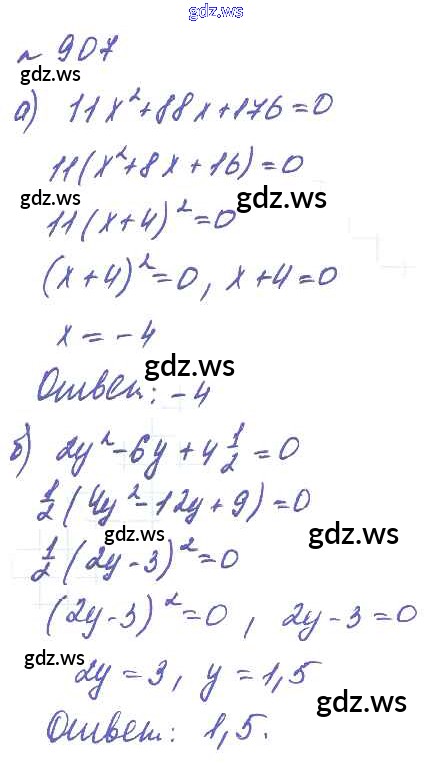 gdz.ws
№ 907
gdz.ws
а) 11x²+88x+176=0
11(x²+8x+16)=0
gdz.ws gdz.ws
11(x+4)²=0
(x+4)²=0, x+4=0
x=-4
gdz.ws
Ответ: -4
б) 2y²-6y+4 1/2=0
1/2(4y²-12y+9)=0
gdz.ws gdz.ws
1/2(2y-3)²=0
(2y-3)²=0, 2y-3=0
gdz.ws
2y=3, y=1,5
gdz.ws
Ответ: 1,5.